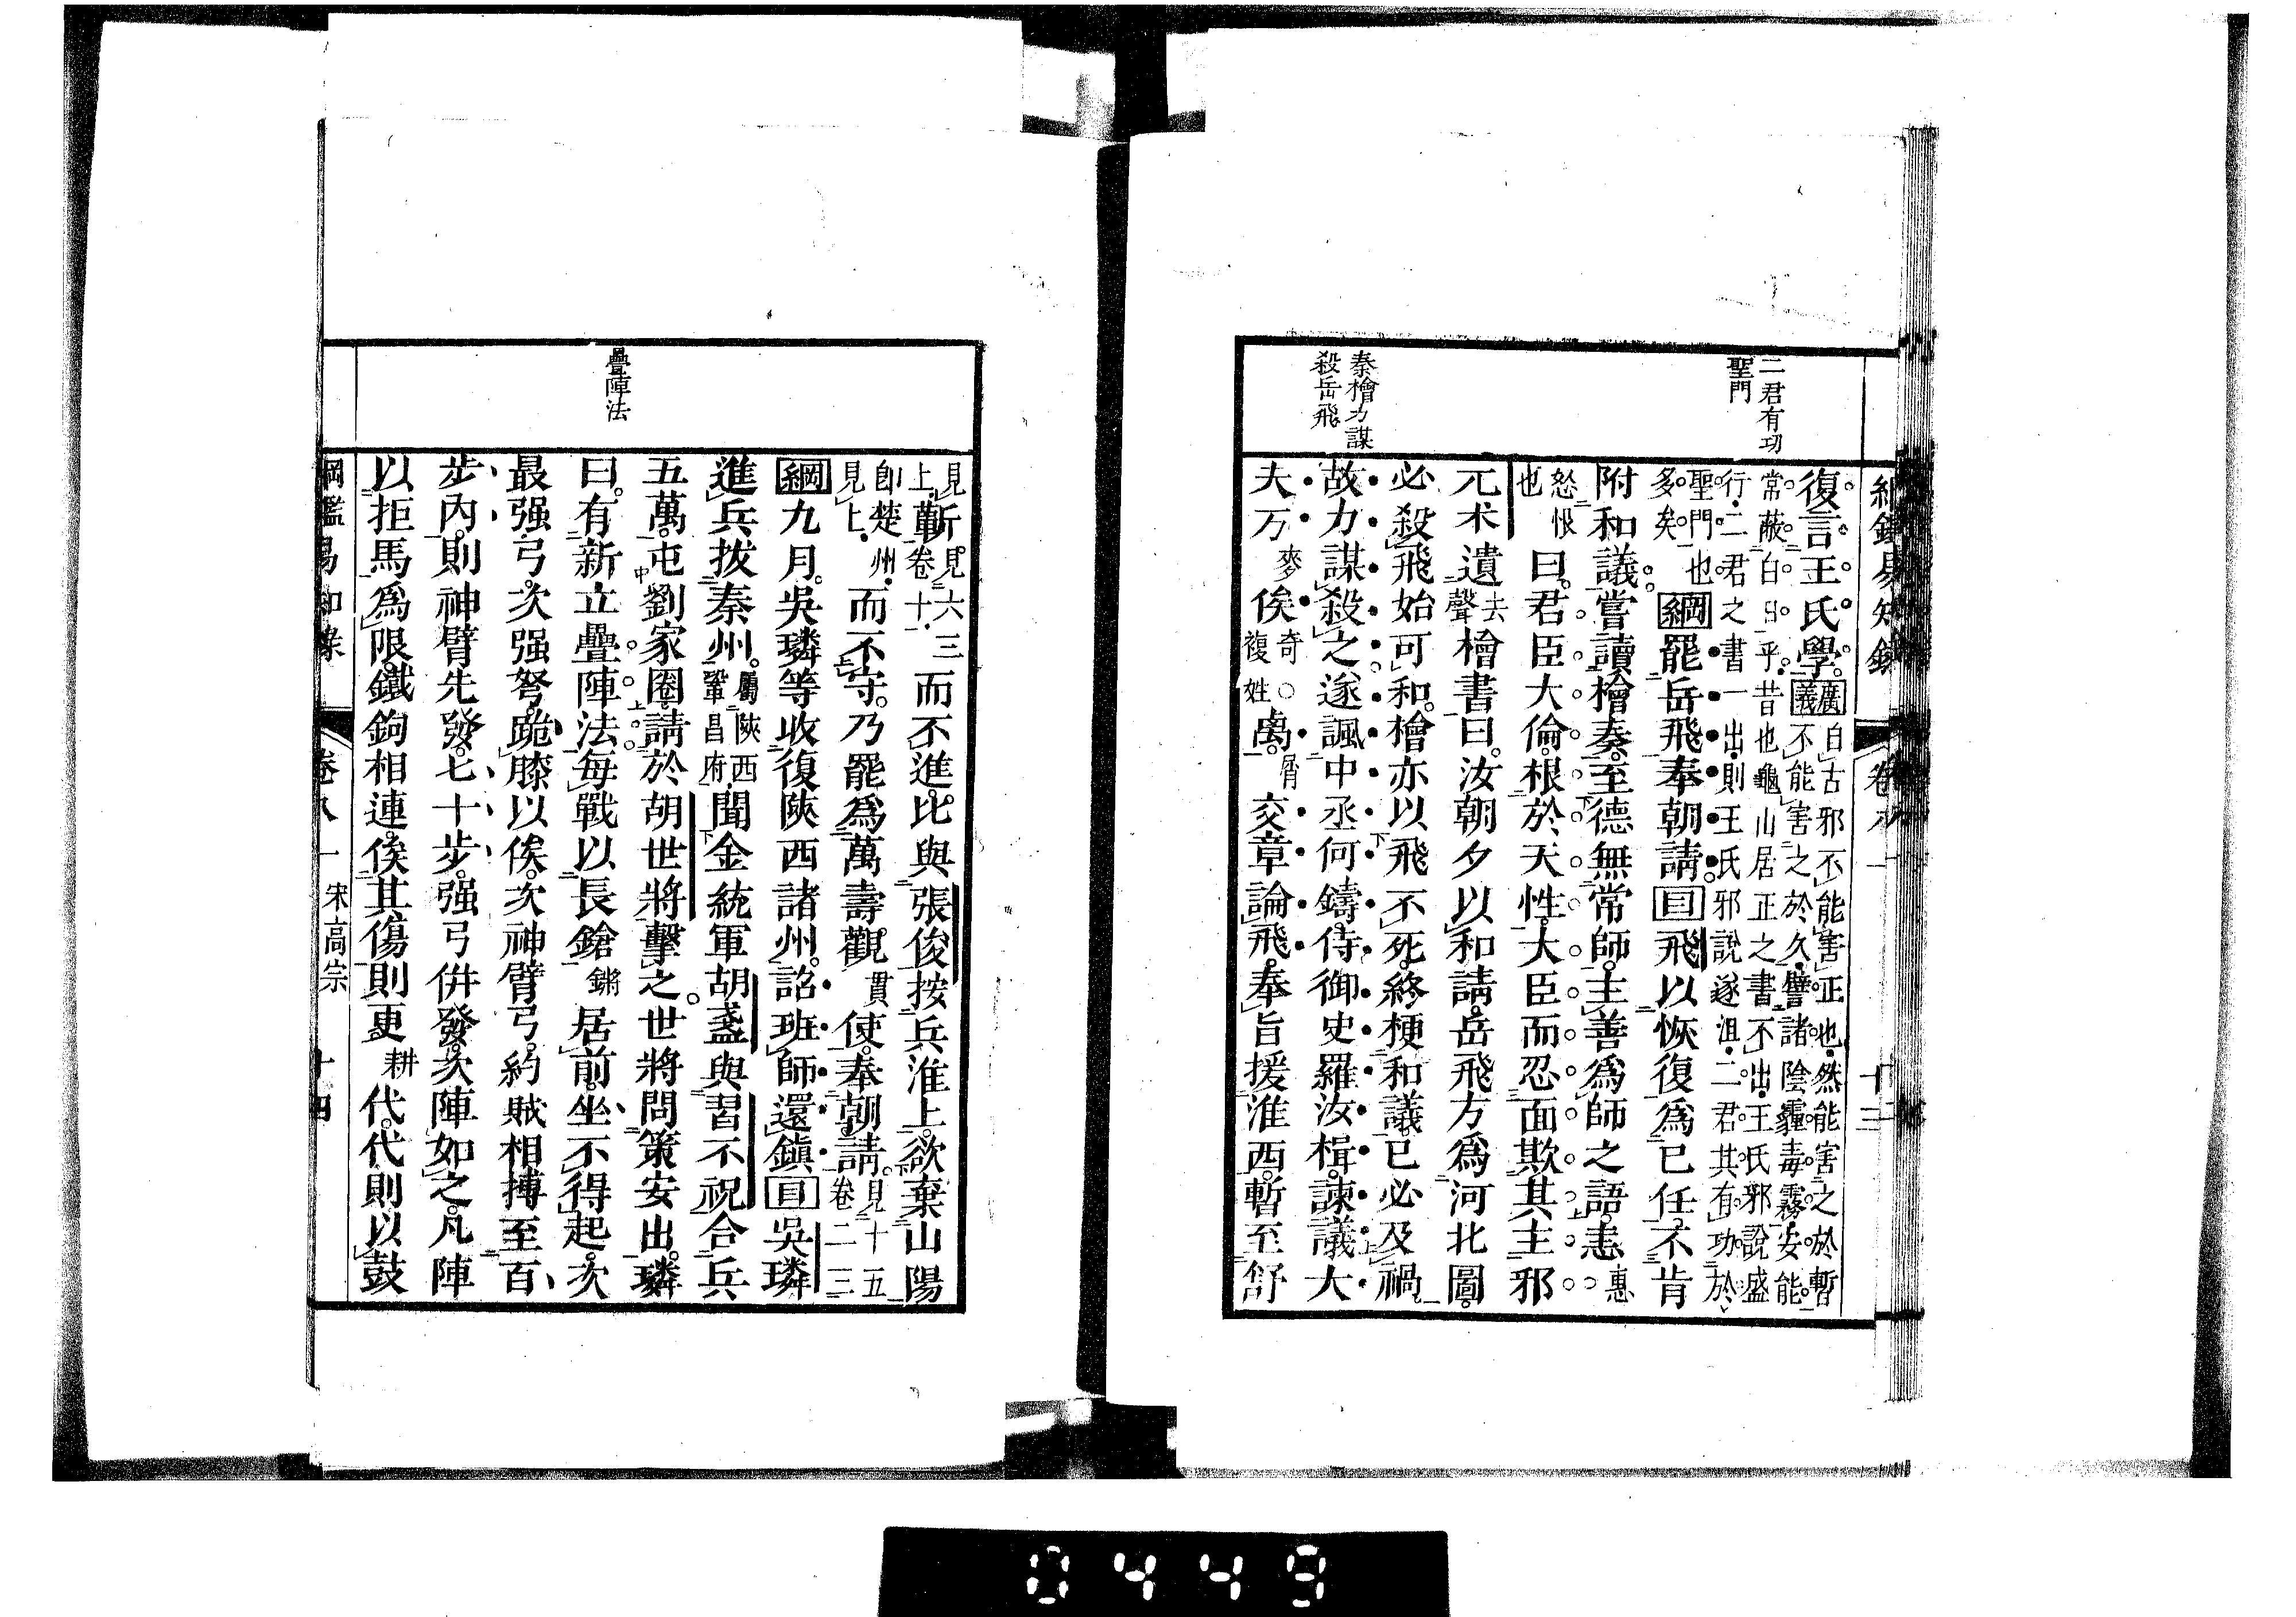 二君有功
聖門
秦檜力謀
殺岳飛
綱鑑易知錄 卷八一 十三
復言王氏學。廣義自古邪不能害正也然能害之於暫
不能害之於久譬諸陰霾毒霧安能
常蔽白日乎昔也龜山居正之書不出王氏邪說盛
行二君之書一出則王氏邪說遂沮二君其有功於
聖門也
多矣
綱罷岳飛奉朝請。目飛以恢復爲已任。不肯
附和議。嘗讀檜奏。至德無常師。主善爲師之語。恚惠
怒恨
也
曰。君臣大倫。根於天性。大臣而忍面欺其主邪
兀朮遺去聲檜書曰。汝朝夕以和請。岳飛方爲河北圖。
必殺飛始可和。檜亦以飛不死。終梗和議。已必及禍。
故力謀殺之。遂諷中丞何鑄。侍御史羅汝楫。諫議大
夫万麥俟奇複姓卨。屑交章論飛。奉旨援淮西。暫至舒
疊陣法
見上
蘄見六三卷十
而不進。比與張俊按兵淮上。欲棄山陽
卽楚州見上
而不守。乃罷爲萬壽觀貫使。奉朝請。見十五卷二三
綱九月。吳璘等收復陝西諸州。詔班師還鎭目吳璘
進兵拔秦州。屬陝西鞏昌府聞金統軍胡盞與習不祝合兵
五萬。屯劉家圈。請於胡世將擊之。世將問策安出。璘
曰。有新立疊陣法。每戰以長鎗鏘居前。坐不得起。次
最强弓。次强弩。跪膝以俟。次神臂弓。約賊相搏至百
步內。則神臂先發。七十步。强弓倂發。次陣如之。凡陣
以拒馬爲限。鐵鉤相連。俟其傷則更耕代。代則以鼓
綱鑑易知錄 卷八一 宋高宗 十四
0449